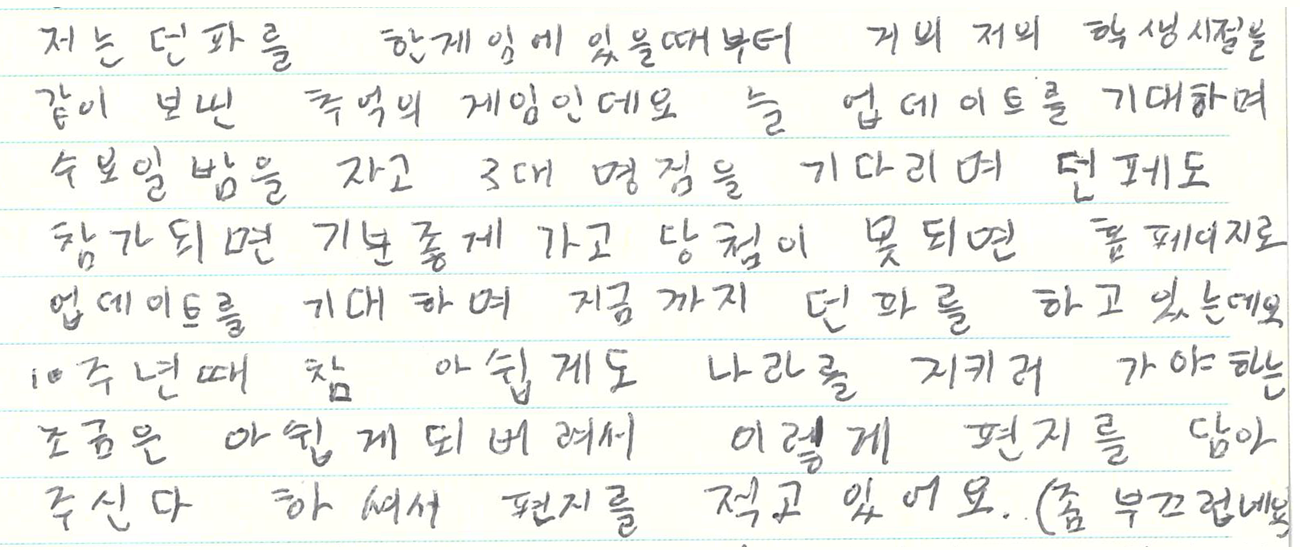 저는 던파를 한게임에 있을때부터 거의 저의 학생시절을
같이 보낸 추억의 게임인데요 늘 업데이트를 기대하며
수요일 밤을 자고 3대 명절을 기다리며 던페도
참가되면 기분좋게 가고 당첨이 못되면 홈페이지로
업데이트를 기대하며 지금까지 던파를 하고 있는데요
10주년때 참 아쉽게도 나라를 지키러 가야하는
조금은 아쉽게 되버려서 이렇게 편지를 담아
주신다 하셔서 편지를 적고 있어요. (좀 부끄럽네요